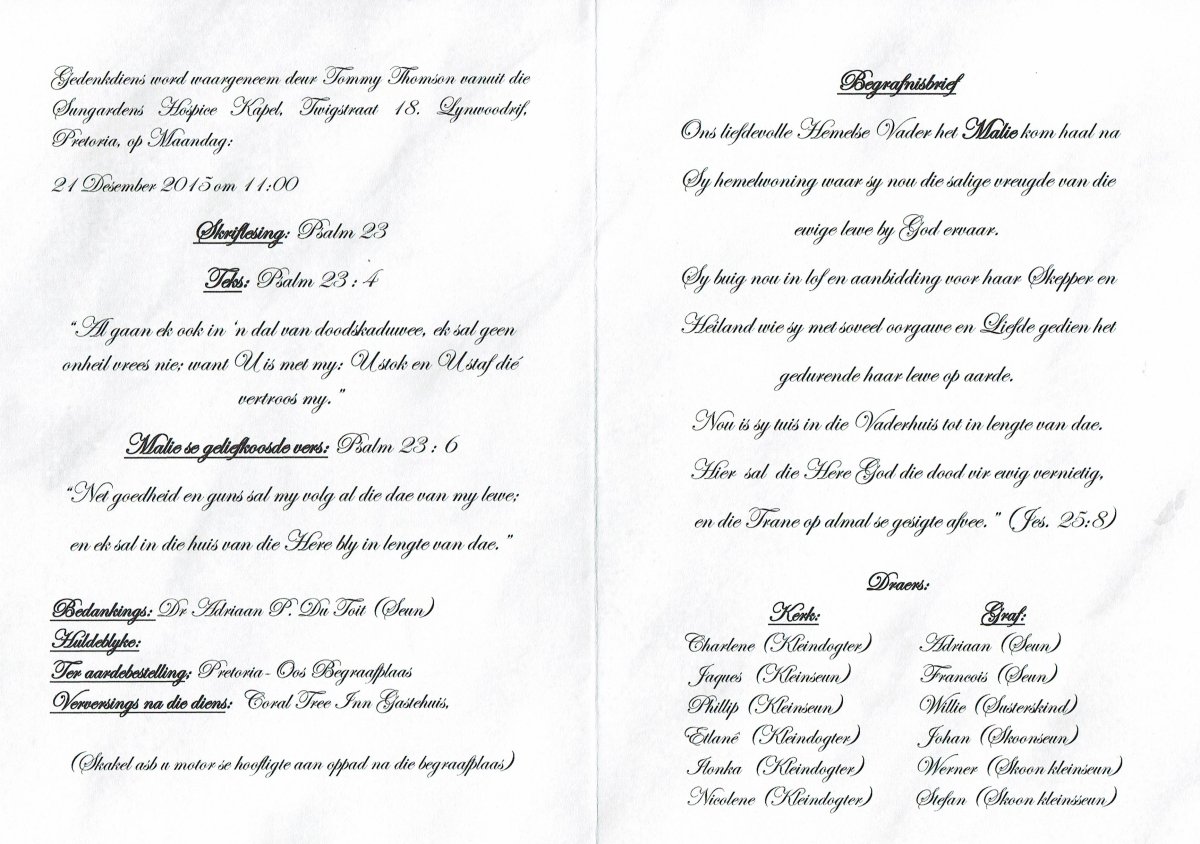 Gedenkdiens word waargeneem deur Tommy Thomson vanuit die
Sungardens Hospice Kapel, Twigstraat 18. Lynwoodrif,
Pretoria, op Maandag:
21 Desember 2015 om 11:00
Skriflesing: Psalm 23
Teks: Psalm 23 : 4
“Al gaan ek ook in ‘n dal van doodskaduwee, ek sal geen
onheil vrees nie; want U is met my: U stok en U staf dié
vertroos my.”
Malie se geliefkoosde vers: Psalm 23 : 6
“Net goedheid en guns sal my volg al die dae van my lewe;
en ek sal in die huis van die Here bly in lengte van dae.”
Bedankings: Dr Adriaan P. Du Toit (Seun)
Huldeblyke:
Ter aardebestelling: Pretoria- Oos Begraafplaas
Verversings na die diens: Coral Tree Inn Gastehuis,
(Skakel asb u motor se hoofligte aan oppad na die begraafplaas)
Begrafnisbrief
Ons liefdevolle Hemelse Vader het Malie kom haal na
Sy hemelwoning waar sy nou die salige vreugde van die
ewige lewe by God ervaar.
Sy buig nou in lof en aanbidding voor haar Skepper en
Heiland wie sy met soveel oorgawe en Liefde gedien het
gedurende haar lewe op aarde.
Nou is sy tuis in die Vaderhuis tot in lengte van dae.
Hier sal die Here God die dood vir ewig vernietig,
en die Trane op almal se gesigte afvee.” (Jes. 25:8)
Draers:
Kerk: Graf:
Charlene (Kleindogter) Adriaan (Seun)
Jaques (Kleinseun) Francois (Seun)
Phillip (Kleinseun) Willie (Susterskind)
Etlanê (Kleindogter) Johan (Skoonseun)
Ilonka (Kleindogter) Werner (Skoon kleinseun)
Nicolene (Kleindogter) Stefan (Skoon kleinsseun)